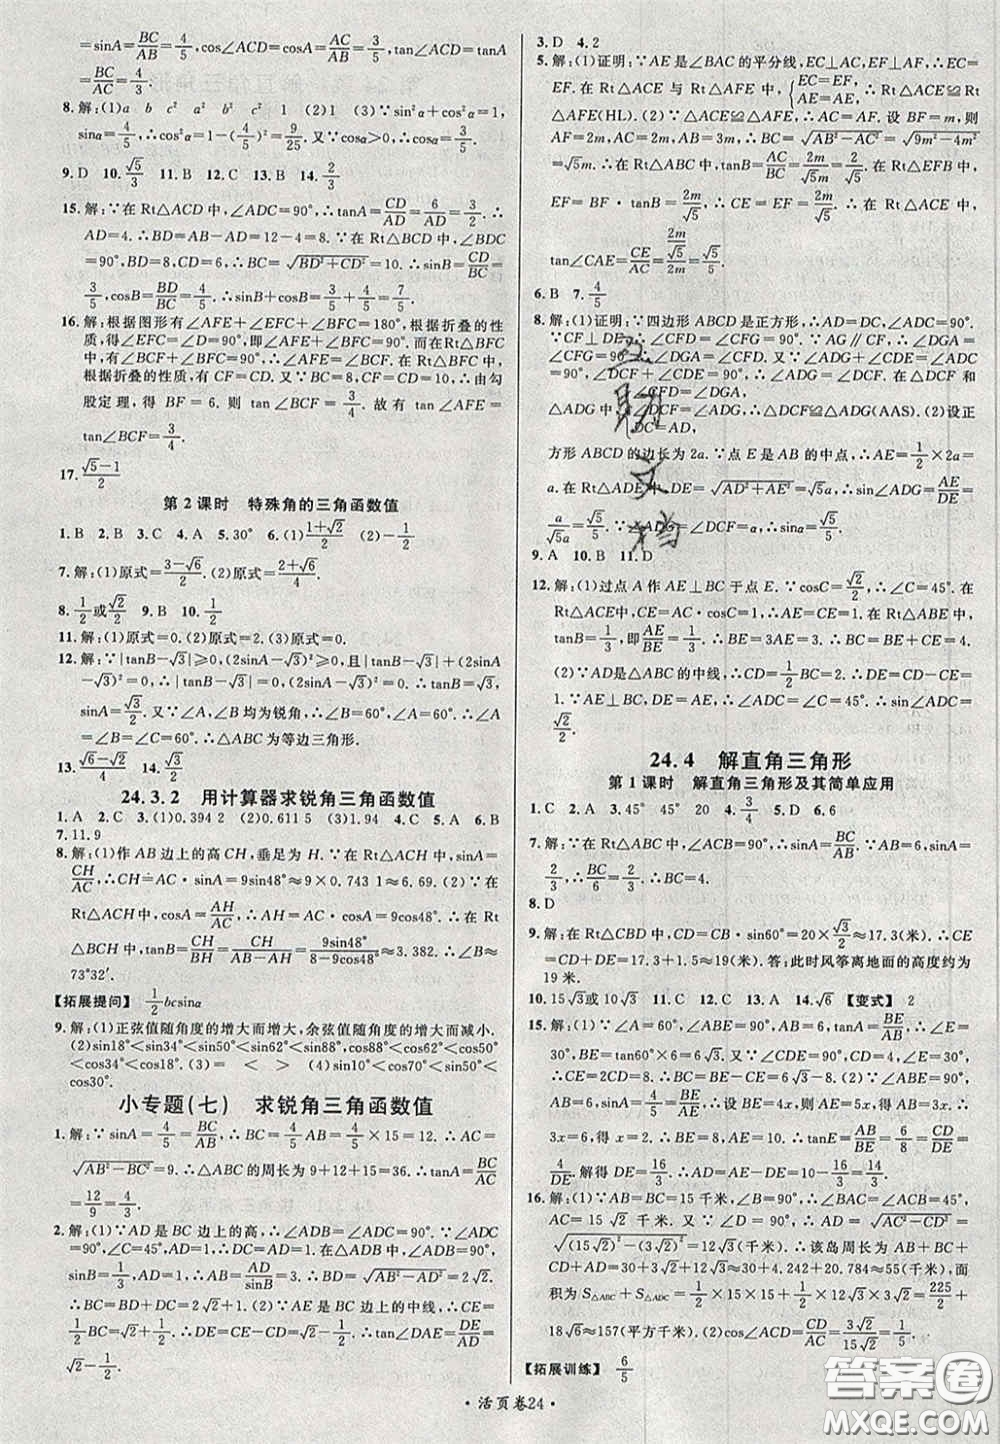 =sinA=BC/AB=4/5,cos∠ACD=cosA=AC/AB=3/5,tan∠ACD=tanA
=BC/AC=4/3.
8.(1)a b c² a² b² c² (2)1 (3)∵sin²α+cos²α=1,
sinα=4/5,∴cos²α=1-(4/5)²=9/25.又∵cosα>0,∴cosα=3/5.
9.D 10.√5/3 11.B 12.C 13.B 14.√2/3
15.解:∵在Rt△ACD中,∠ADC=90°,∴tanA=CD/AD=6/AD=3/2.∴
AD=4.∴BD=AB-AD=12-4=8.∵在Rt△BCD中,∠BDC
=90°,BD=8,CD=6,∴BC=√(BD²+CD²)=10.∴sinB=CD/BC=
3/5,cosB=BD/BC=4/5.∴sinB+cosB=3/5+4/5=7/5.
16.解:根据图形有∠AFE+∠EFC+∠BFC=180°,根据折叠的性
质,得∠EFC=∠D=90°.∴∠AFE=∠BCF.而在Rt△BFC中,
根据折叠的性质,有CF=CD.又∵CF=CD=10,∴由勾
股定理,得BF=6.则tan∠BCF=3/4.故有tan∠AFE=
tan∠BCF=3/4.
17.(√5-1)/2
第2课时 特殊角的三角函数值
1.B 2.B 3.C 4.A 5.30° 6.(1)(1+√2)/2 (2)-1/2
7.解:(1)原式=(3-√6)/2.(2)原式=(2+√6)/4.
8.1/2或√2/2 9.B 10.1/2
11.解:(1)原式=0.(2)原式=0.
12.解:∵|tanB-√3|≥0,(2sinA-√3)²≥0,且|tanB-√3|+(2sinA
-√3)²=0,∴|tanB-√3|=0,(2sinA-√3)²=0.∴tanB=√3,sinA
=√3/2.又∵∠A,∠B均为锐角,∴∠B=60°,∠A=60°.∴∠A
=∠B=∠C=60°.∴△ABC为等边三角形.
13.(√6-√2)/4 14.√3/2
24.3.2 用计算器求锐角三角函数值
1.A 2.C 3.(1)0.394 2 (2)0.611 5 (3)1.94 4.C 5.A 6.B
7.11.9
8.解:(1)作AB边上的高CH,垂足为H.∵在Rt△ACH中,sinA=
CH/AC,∴CH=AC·sinA=9sin48°≈9×0.743 1≈6.69.(2)∵在
Rt△ACH中,cosA=AH/AC,∴AH=AC·cosA=9cos48°.∴在Rt
△BCH中,tanB=CH/BH=CH/(AB-AH)=9sin48°/(8-9cos48°)≈3.382.∴∠B≈
73°32′.
【拓展提问】 1/2 bcsinα
9.解:(1)正弦值随角度的增大而增大,余弦值随角度的增大而减小.
(2)sin18°<sin34°<sin50°<sin62°<sin88°,cos88°<cos62°<cos50°
<cos34°<cos18°.(3)= < > (4)cos70°<sin30°
<cos30°.
小专题(七) 求锐角三角函数值
1.解:∵sinA=4/5=BC/AB,∴BC=4/5 AB=4/5×15=12.∴AC=
√(AB²-BC²)=9.∴△ABC的周长为9+12+15=36.∴tanA=BC/AC=
12/9=4/3.
2.解:(1)∵AD是BC边上的高,∴∠ADB=∠ADC=90°.∵∠ADC
=90°,∠C=45°,AD=1,∴DC=AD=1.∵∠ADB=90°,
sinB=1/3,AD=1,∴AB=AD/sinB=3.∴BD=√(AB²-AD²)=2√2.
∴BC=BD+DC=2√2+1.(2)∵AE是BC边上的中线,∴CE=
1/2 BC=√2+1/2.∴DE=CE-CD=√2-1/2.∴tan∠DAE=DE/AD=
√2-1/2.
3.D 4.2
5.解:(1)证明:∵AE是∠BAC的平分线,EC⊥AC,EF⊥AF,∴EC=
EF.在Rt△ACE与Rt△AFE中,{EC=EF,AE=AE,∴Rt△ACE≌Rt
△AFE(HL).(2)由(1)可知△ACE≌△AFE,∴AC=AF.设BF=m,则
AF=2m,AC=2m,AB=3m,∴BC=√(AB²-AC²)=√(9m²-4m²)
=√5m.∴在Rt△ABC中,tanB=AC/BC=2m/√5m=2/√5.∴在Rt△EFB中,
EF=BF·tanB=2m/√5.∴CE=EF=2m/√5.∴在Rt△ACE中,
tan∠CAE=CE/AC=(2m/√5)/2m=√5/5.
6.B 7.4/5
8.解:(1)证明:∵四边形ABCD是正方形,∴DC=AD,∠ADC=90°.
∵CF⊥DE,∴∠CFD=∠CFG=90°.∵AG∥CF,∴∠DGA=
∠CFG=90°.∴∠DGA=∠CFD.又∵∠ADG+∠CDF=∠ADC
=90°,∠DCF+∠CDF=90°,∴∠ADG=∠DCF.在△DCF和
△ADG中,{∠CFD=∠DGA,∠DCF=∠ADG,DC=AD,∴△DCF≌△ADG(AAS).(2)设正
方形ABCD的边长为2a.∵点E是AB的中点,∴AE=1/2×2a=
a.在Rt△ADE中,DE=√(AD²+AE²)=√5a,∴sin∠ADG=AE/DE=
a/√5a=√5/5.∵∠ADG=∠DCF=α,∴sinα=√5/5.
9.A 10.B 11.D
12.解:(1)过点A作AE⊥BC于点E.∵cosC=√2/2,∴∠C=45°.在
Rt△ACE中,CE=AC·cosC=1.∴AE=CE=1.在Rt△ABE中,
tanB=1/3,即AE/BE=1/3.∴BE=3AE=3.∴BC=BE+CE=4.
(2)∵AD是△ABC的中线,∴CD=1/2 BC=2.∴DE=CD-CE=
1.∵AE⊥BC,DE=AE,∴∠ADC=45°.∴sin∠ADC=
√2/2.
24.4 解直角三角形
第1课时 解直角三角形及其简单应用
1.C 2.A 3.45° 45° 20 4.3/4 5.D 6.6
7.解:∵在Rt△ABC中,∠ACB=90°,∴sinA=BC/AB.∵AB=6,sinA=
2/3,∴BC/6=2/3.∴BC=4.
8.D
9.解:在Rt△CBD中,CD=CB·sin60°=20×√3/2≈17.3(米).∴CE
=CD+DE=17.3+1.5≈19(米).答:此时风筝离地面的高度约为
19米.
10.15√3或10√3 11.C 12.C 13.A 14.√6 【变式】 2
15.解:(1)∵∠A=60°,∠ABE=90°,AB=6,∴tanA=BE/AB,∠E=
30°,BE=tan60°×6=6√3.又∵∠CDE=90°,CD=4,∠E=30°,
∴CE=8.∴BC=BE-CE=6√3-8.(2)∵∠ABE=90°,AB=
6,sinA=4/5=BE/AE,∴设BE=4x,则AE=5x,得AB=3x.∴3x=
6.得x=2.∴BE=8,AE=10.∴tanE=AB/BE=6/8=CD/DE=
4/DE.解得DE=16/3.∴AD=AE-DE=10-16/3=14/3.
16.解:(1)∵AB=BC=15千米,∠B=90°,∴∠BAC=∠ACB=45°,
AC=15√2千米.又∵∠D=90°,∴AD=√(AC²-CD²)=
√((15√2)²-(3√2)²)=12√3(千米).∴该岛周长为AB+BC+
CD+AD=30+3√2+12√3≈30+4.242+20.784≈55(千米),面
积为S△ABC+S△ADC=1/2×15×15+1/2×12√3×3√2=225/2+
18√6≈157(平方千米).(2)cos∠ACD=CD/AC=3√2/15√2=1/5.
【拓展训练】 6/5
·活页卷24·
互动文档
答案圈
MXQE.COM